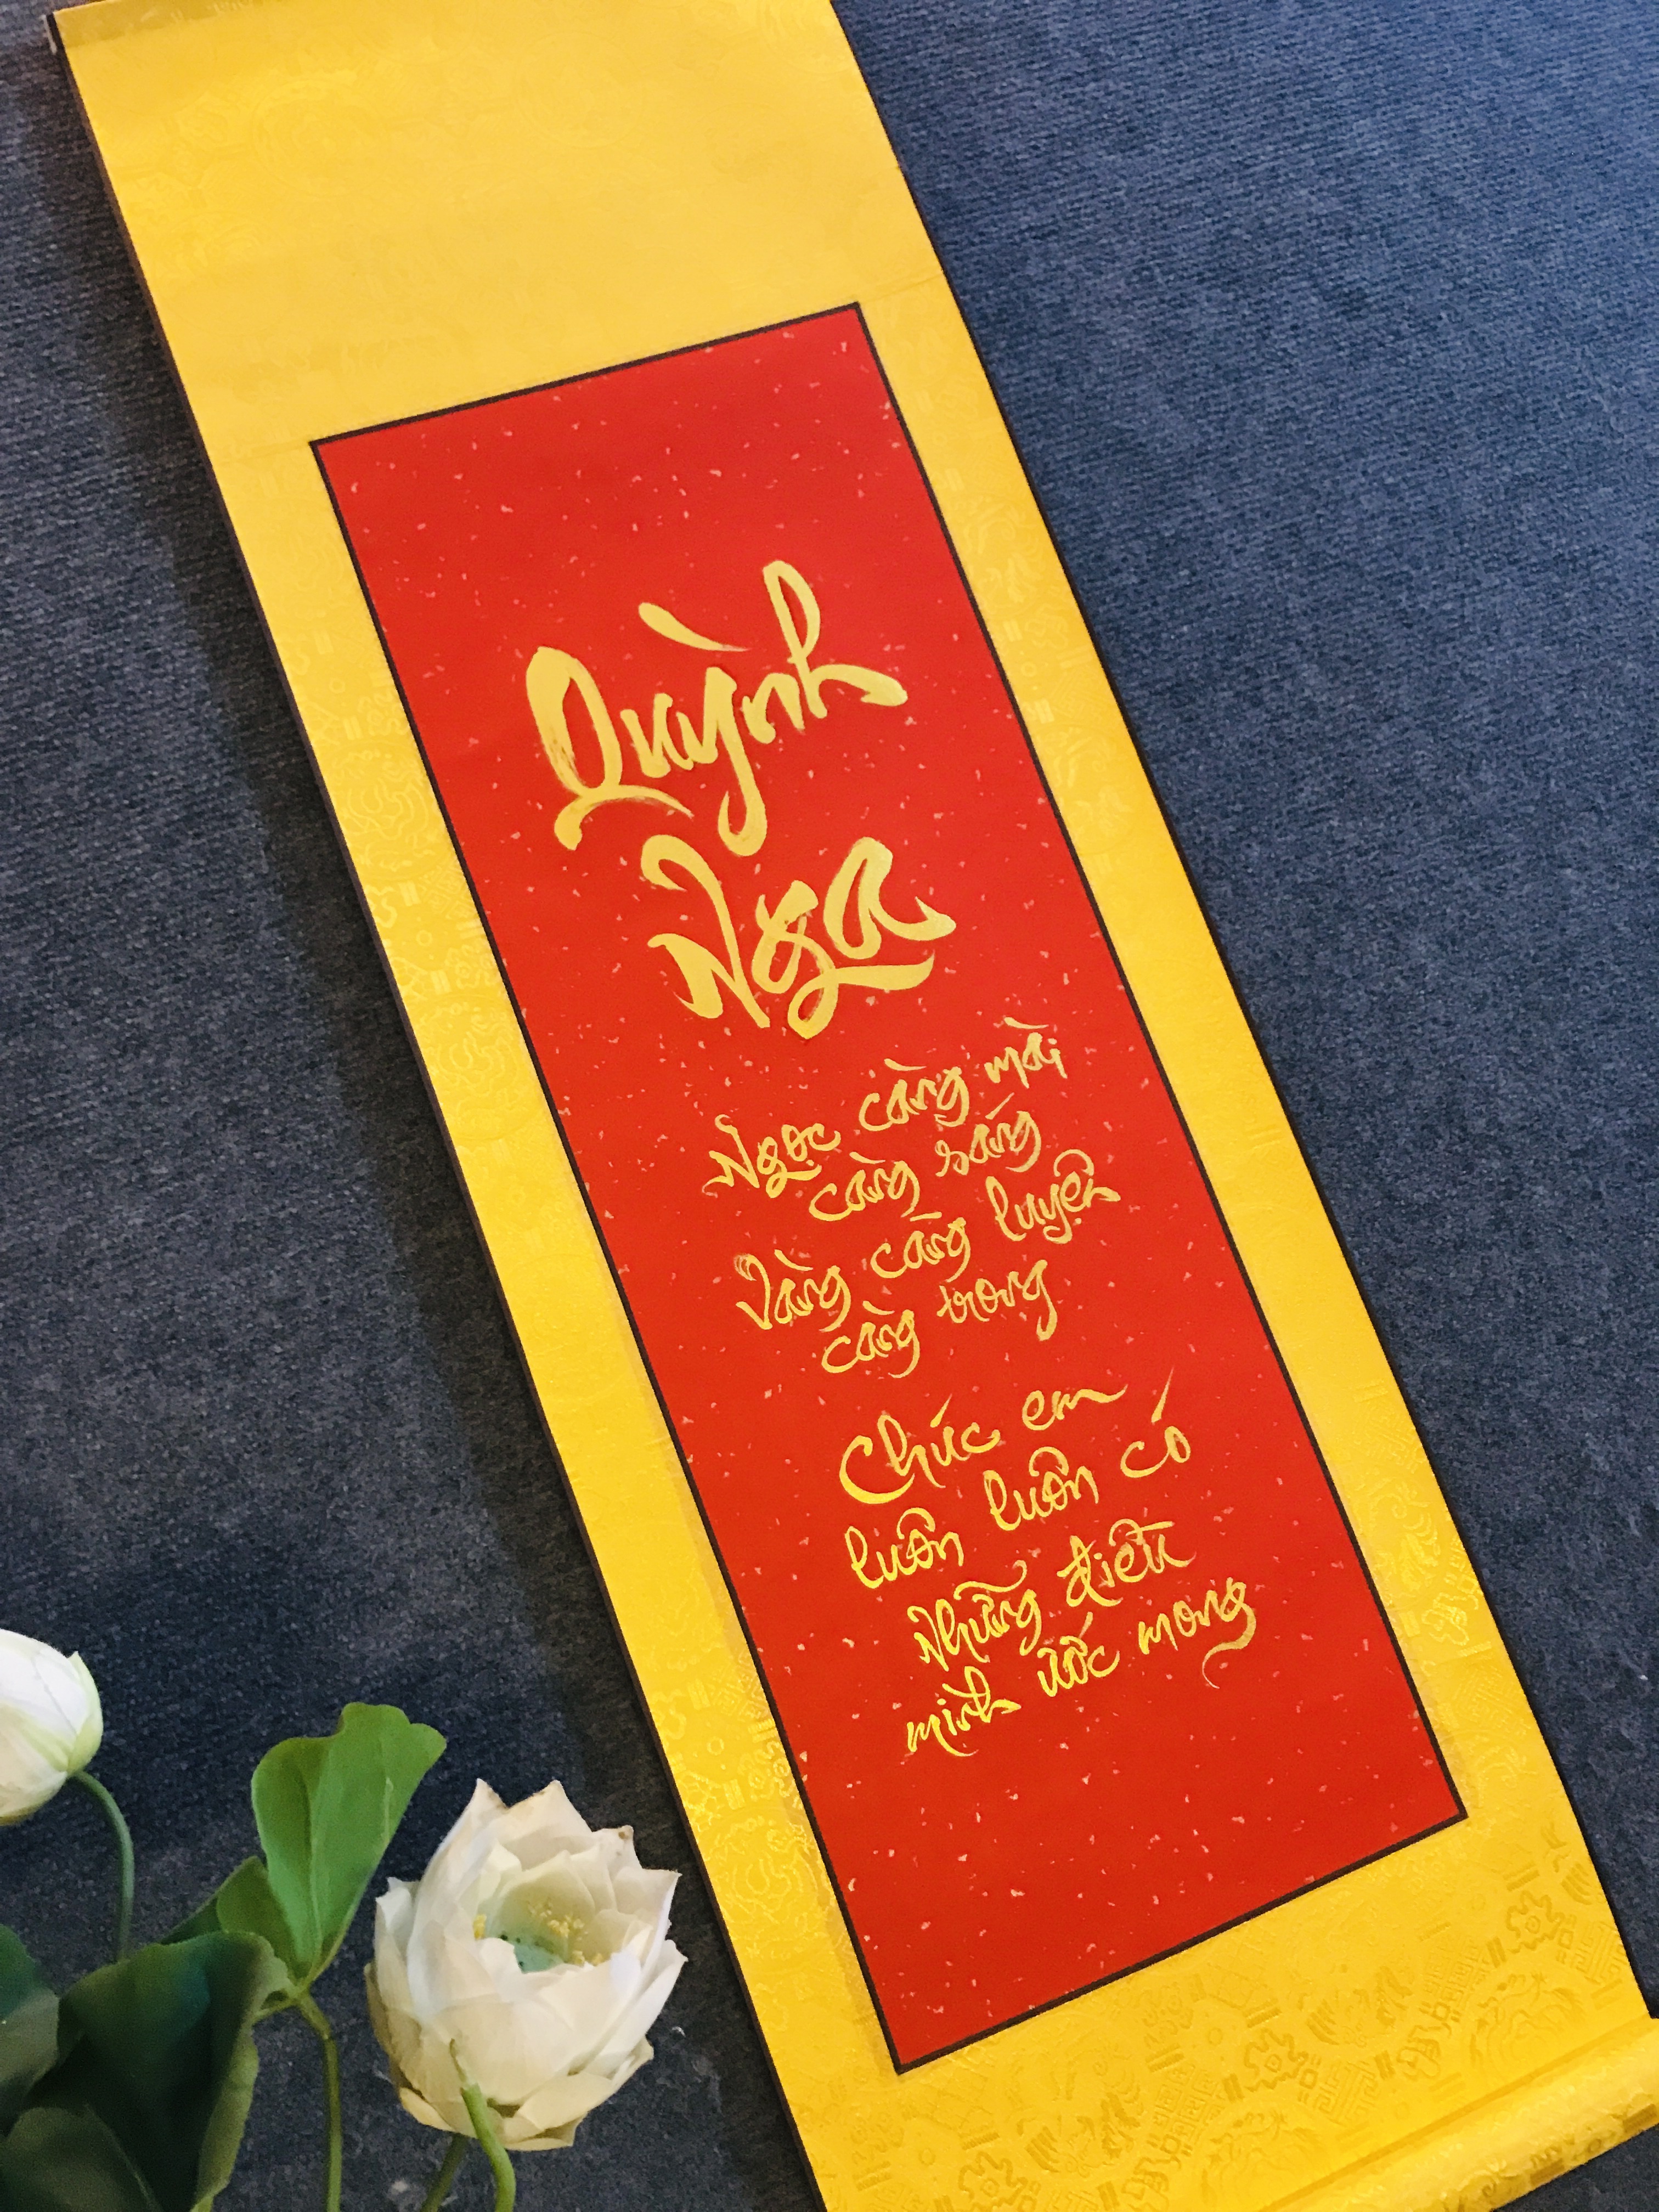 Quỳnh
Nga
Ngọc càng mài
càng sáng
Vàng càng luyện
càng trong
Chúc em
luôn luôn có
Những điều
mình ước mong